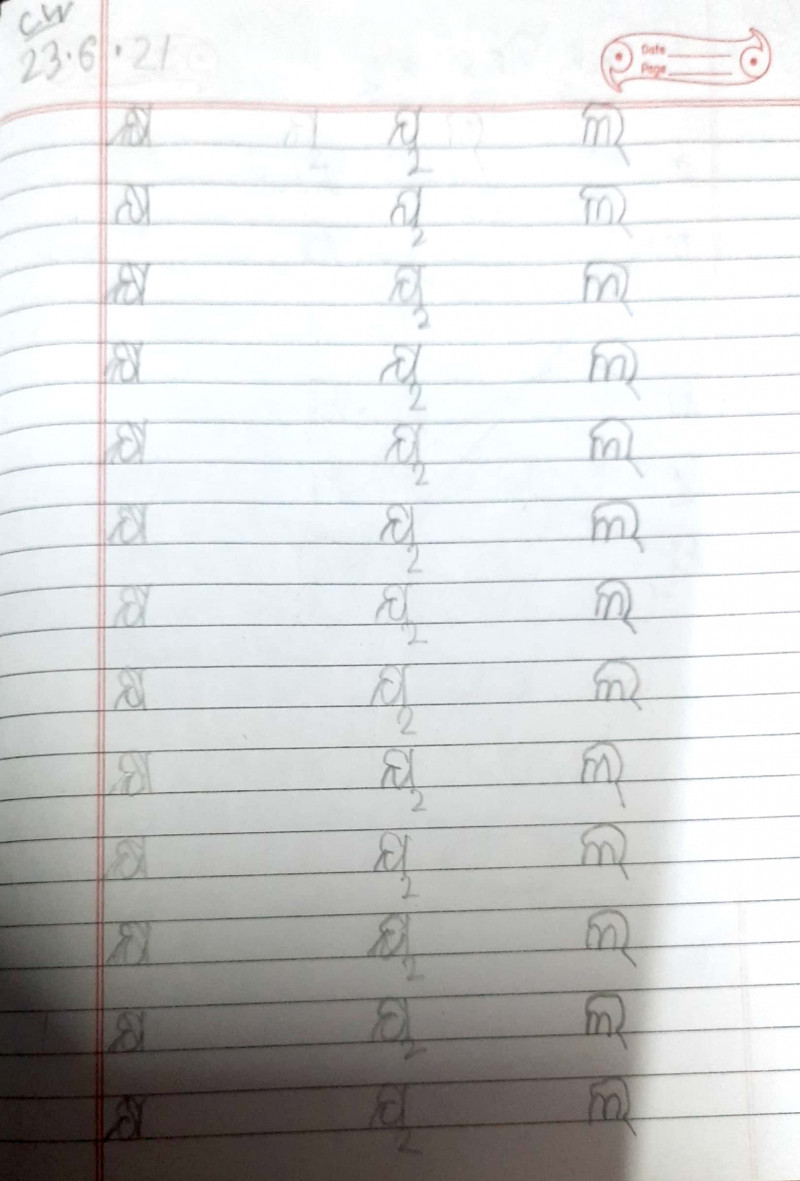 CW
23.6.21
Date
Page
କ୍ଷ ୟ ଲ
କ୍ଷ ୟ ଲ
କ୍ଷ ୟ ଲ
କ୍ଷ ୟ ଲ
କ୍ଷ ୟ ଲ
କ୍ଷ ୟ ଲ
କ୍ଷ ୟ ଲ
କ୍ଷ ୟ ଲ
କ୍ଷ ୟ ଲ
କ୍ଷ ୟ ଲ
କ୍ଷ ୟ ଲ
କ୍ଷ ୟ ଲ
କ୍ଷ ୟ ଲ